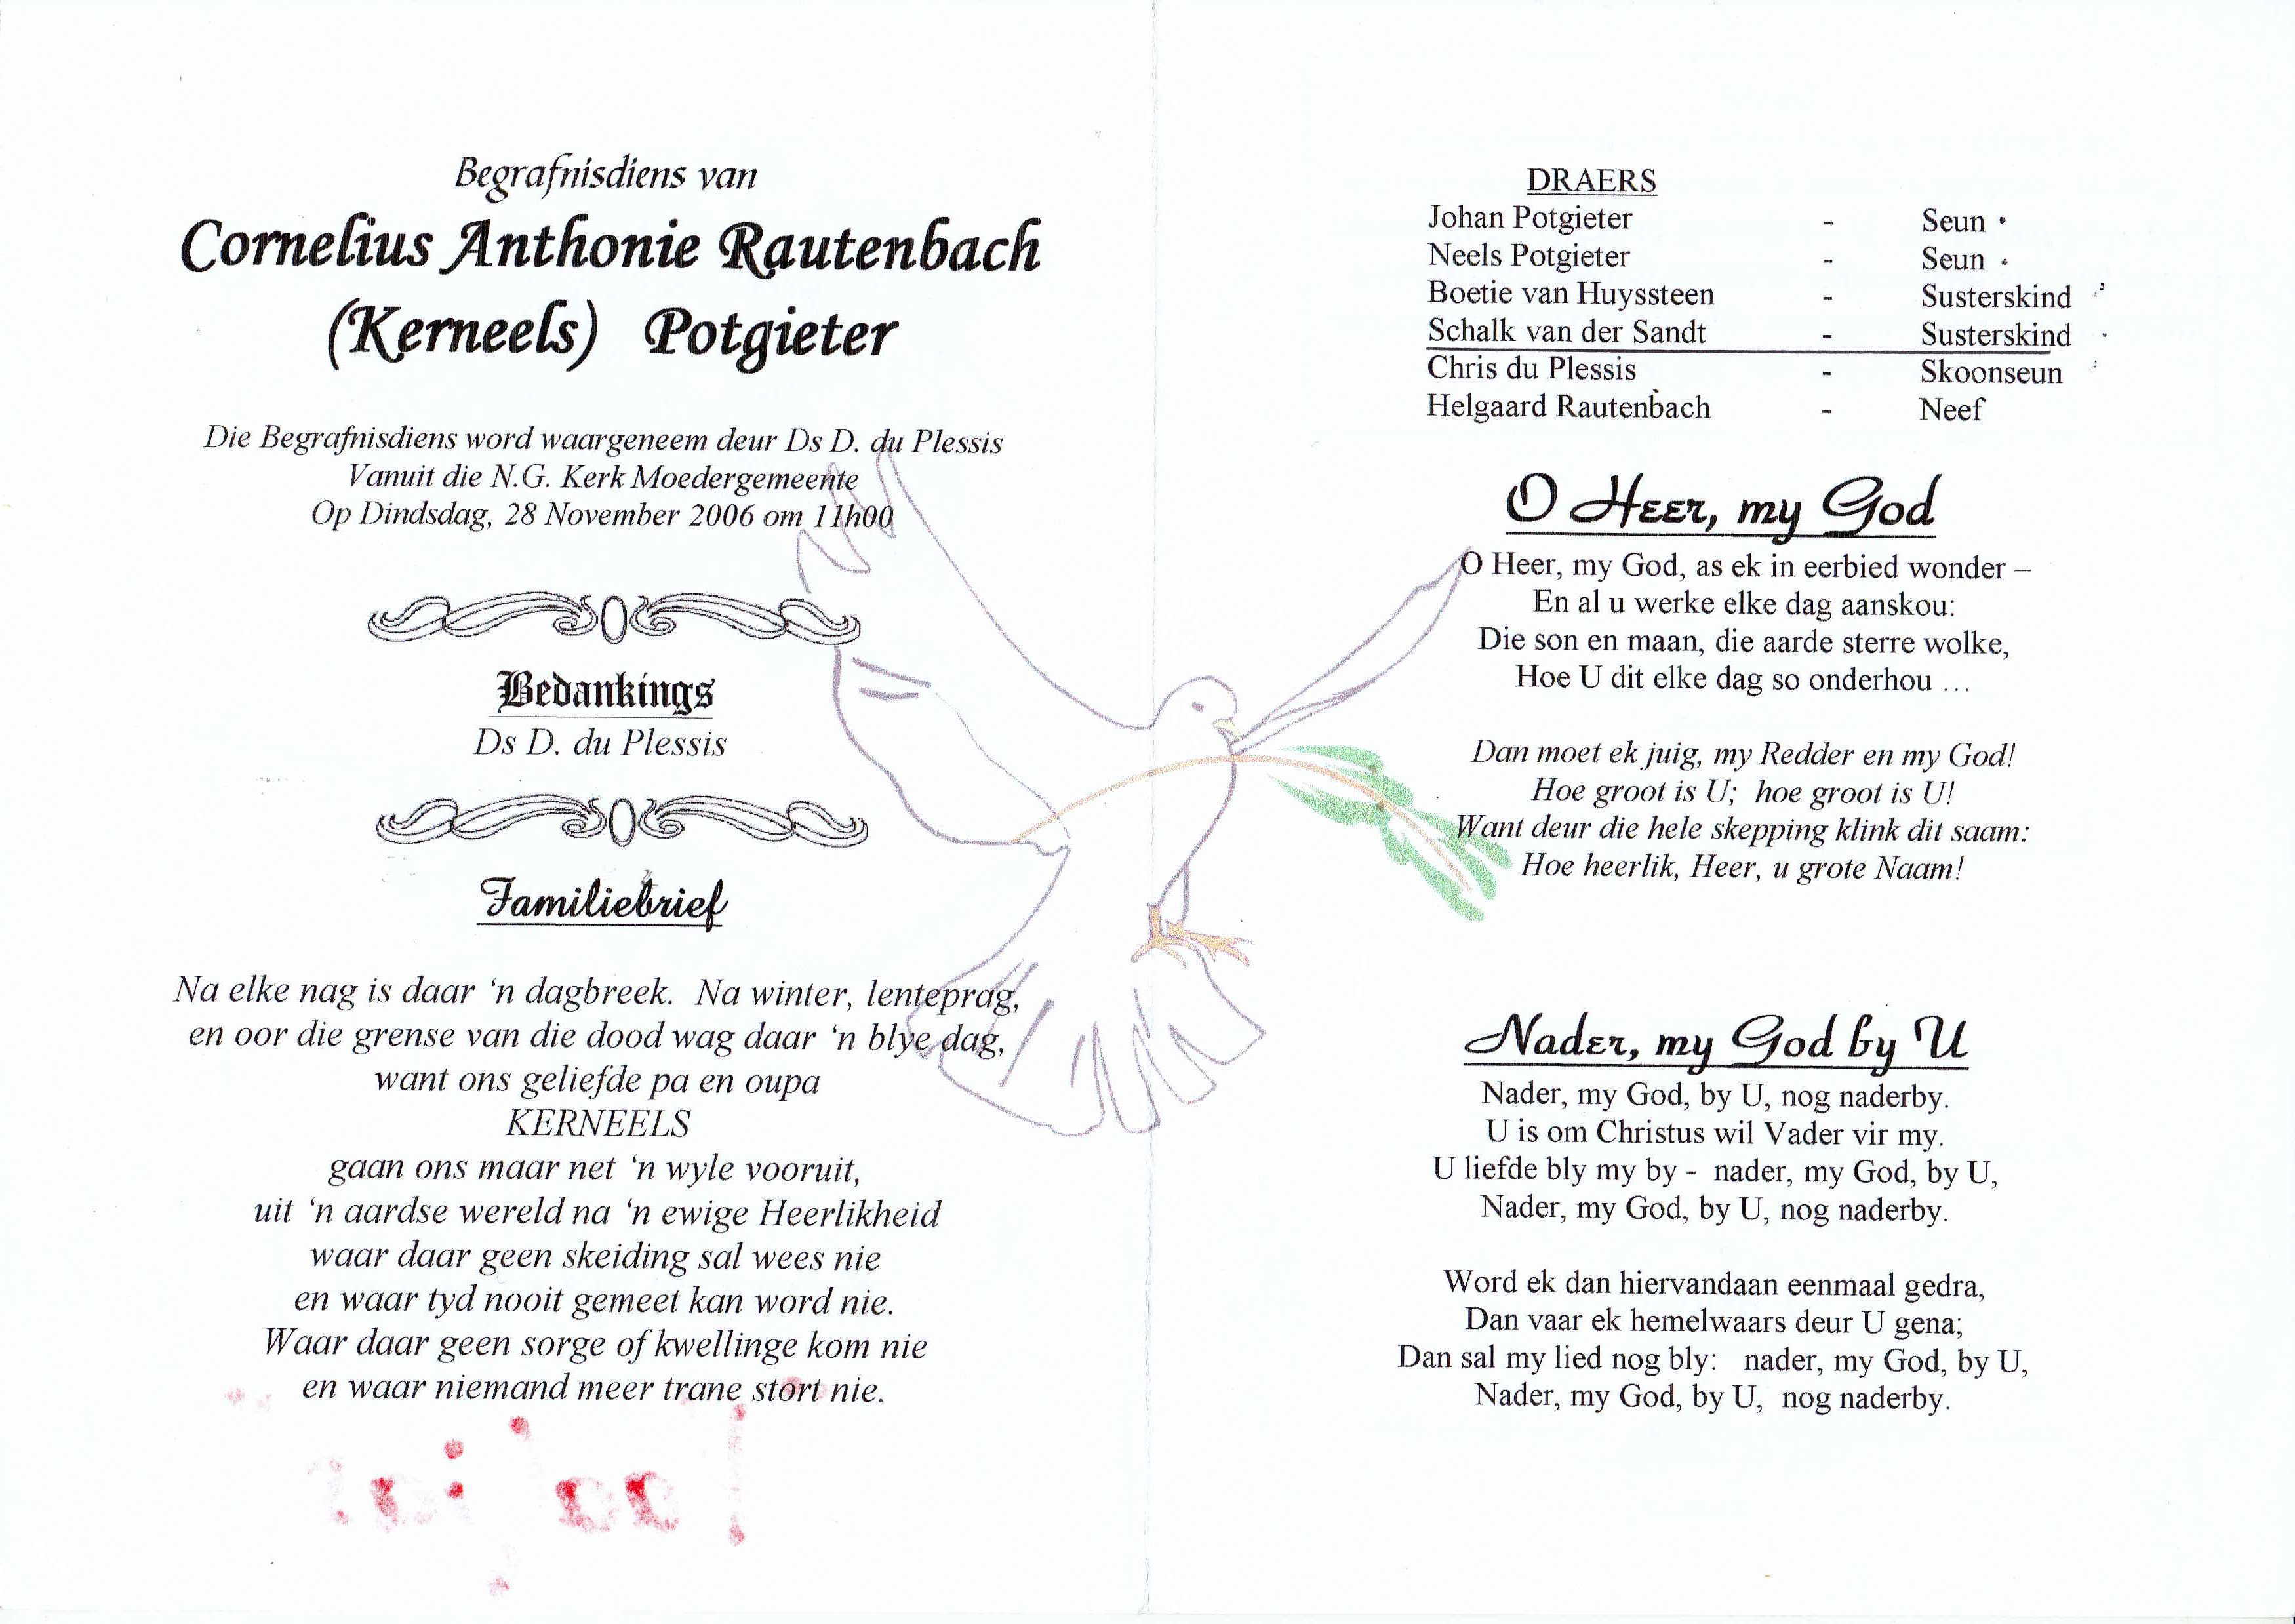 Begrafnisdiens van
Cornelius Anthonie Rautenbach
(Kerneels) Potgieter
Die Begrafnisdiens word waargeneem deur Ds D. du Plessis
Vanuit die N.G. Kerk Moedergemeente
Op Dindsdag, 28 November 2006 om 11h00
Bedankings
Ds D. du Plessis
Familiebrief
Na elke nag is daar ‘n dagbreek. Na winter, lenteprag,
en oor die grense van die dood wag daar ‘n blye dag,
want ons geliefde pa en oupa
KERNEELS
gaan ons maar net ‘n wyle vooruit,
uit ‘n aardse wereld na ‘n ewige Heerlikheid
waar daar geen skeiding sal wees nie
en waar tyd nooit gemeet kan word nie.
Waar daar geen sorge of kwellinge kom nie
en waar niemand meer trane stort nie.
DRAERS
Johan Potgieter - Seun
Neels Potgieter - Seun
Boetie van Huyssteen - Susterskind
Schalk van der Sandt - Susterskind
Chris du Plessis - Skoonseun
Helgaard Rautenbach - Neef
O Heer, my God
O Heer, my God, as ek in eerbied wonder –
En al u werke elke dag aanskou:
Die son en maan, die aarde sterre wolke,
Hoe U dit elke dag so onderhou …
Dan moet ek juig, my Redder en my God!
Hoe groot is U; hoe groot is U!
Want deur die hele skepping klink dit saam:
Hoe heerlik, Heer, u grote Naam!
Nader, my God by U
Nader, my God, by U, nog naderby.
U is om Christus wil Vader vir my.
U liefde bly my by - nader, my God, by U,
Nader, my God, by U, nog naderby.
Word ek dan hiervandaan eenmaal gedra,
Dan vaar ek hemelwaars deur U gena;
Dan sal my lied nog bly: nader, my God, by U,
Nader, my God, by U, nog naderby.